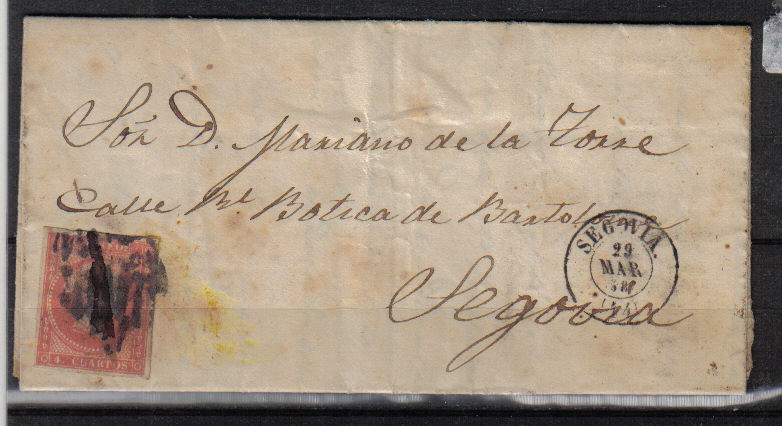 Sór D. Mariano de la Torre
Calle Rl. Botica de Bartolomé
Segovia
SEGOVIA.
29
MAR
58
4. CUARTOS